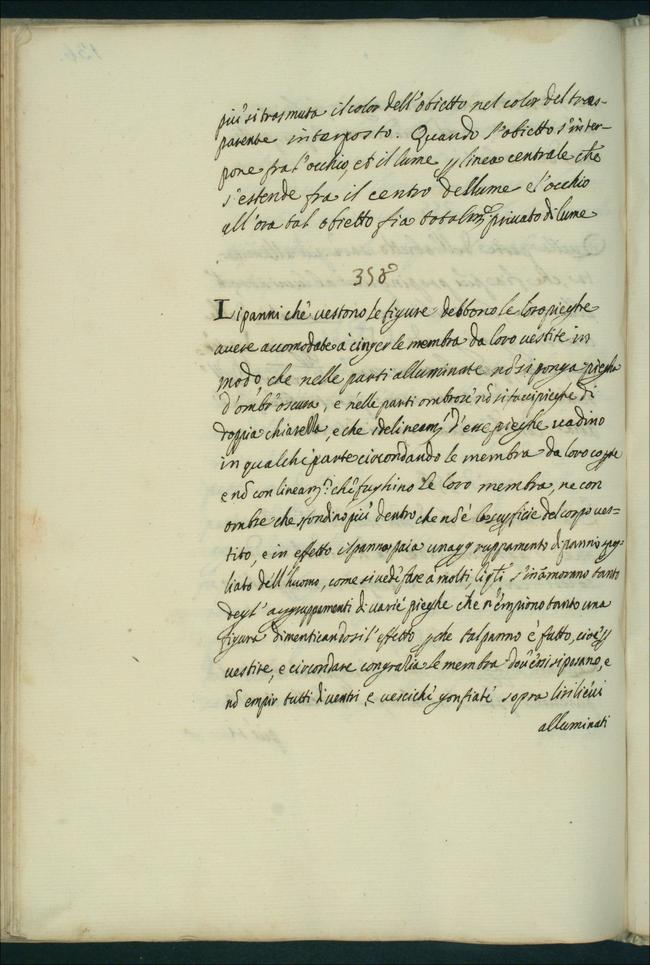 più si trasmuta il color dell'obietto nel color del tras-
parente interposto. Quando l'obietto s'inter-
pone fra l'occhio, et il lume p linea centrale che
s'estende fra il centro del lume e l'occhio
all'ora tal obietto fia totalmte privato di lume
358
Li panni che vestono le figure debbono le loro pieghe
avere accomodate à cinger le membra da loro vestite in
modo che nelle parti alluminate nō si ponga piegha
d'ombr'oscura, e nelle parti ombrose nō si facci pieghe di
doppia chiarella, e che i delineamti d'esse pieghe vadino
in qualche parte circondando le membra da loro coperte
e nō con lineamti che fughino le loro membra, ne con
ombre che sfondino più dentro che nō è la superficie del corpo ves-
tito, e in effetto il panno paia un aggruppamento di panno spog-
liato dell'huomo, come si vede fare a molti li qli s'inamorano tanto
degl'aggruppamenti di varie pieghe che n'empiono tanto una
figura dimenticandosi l'effetto p che tal panno è fatto, cioè p
vestire, e circondare con gratia le membra dov'essi si posano, e
nō empir tutti di ventri, e vesciche gonfiate sopra li rilievi
alluminati